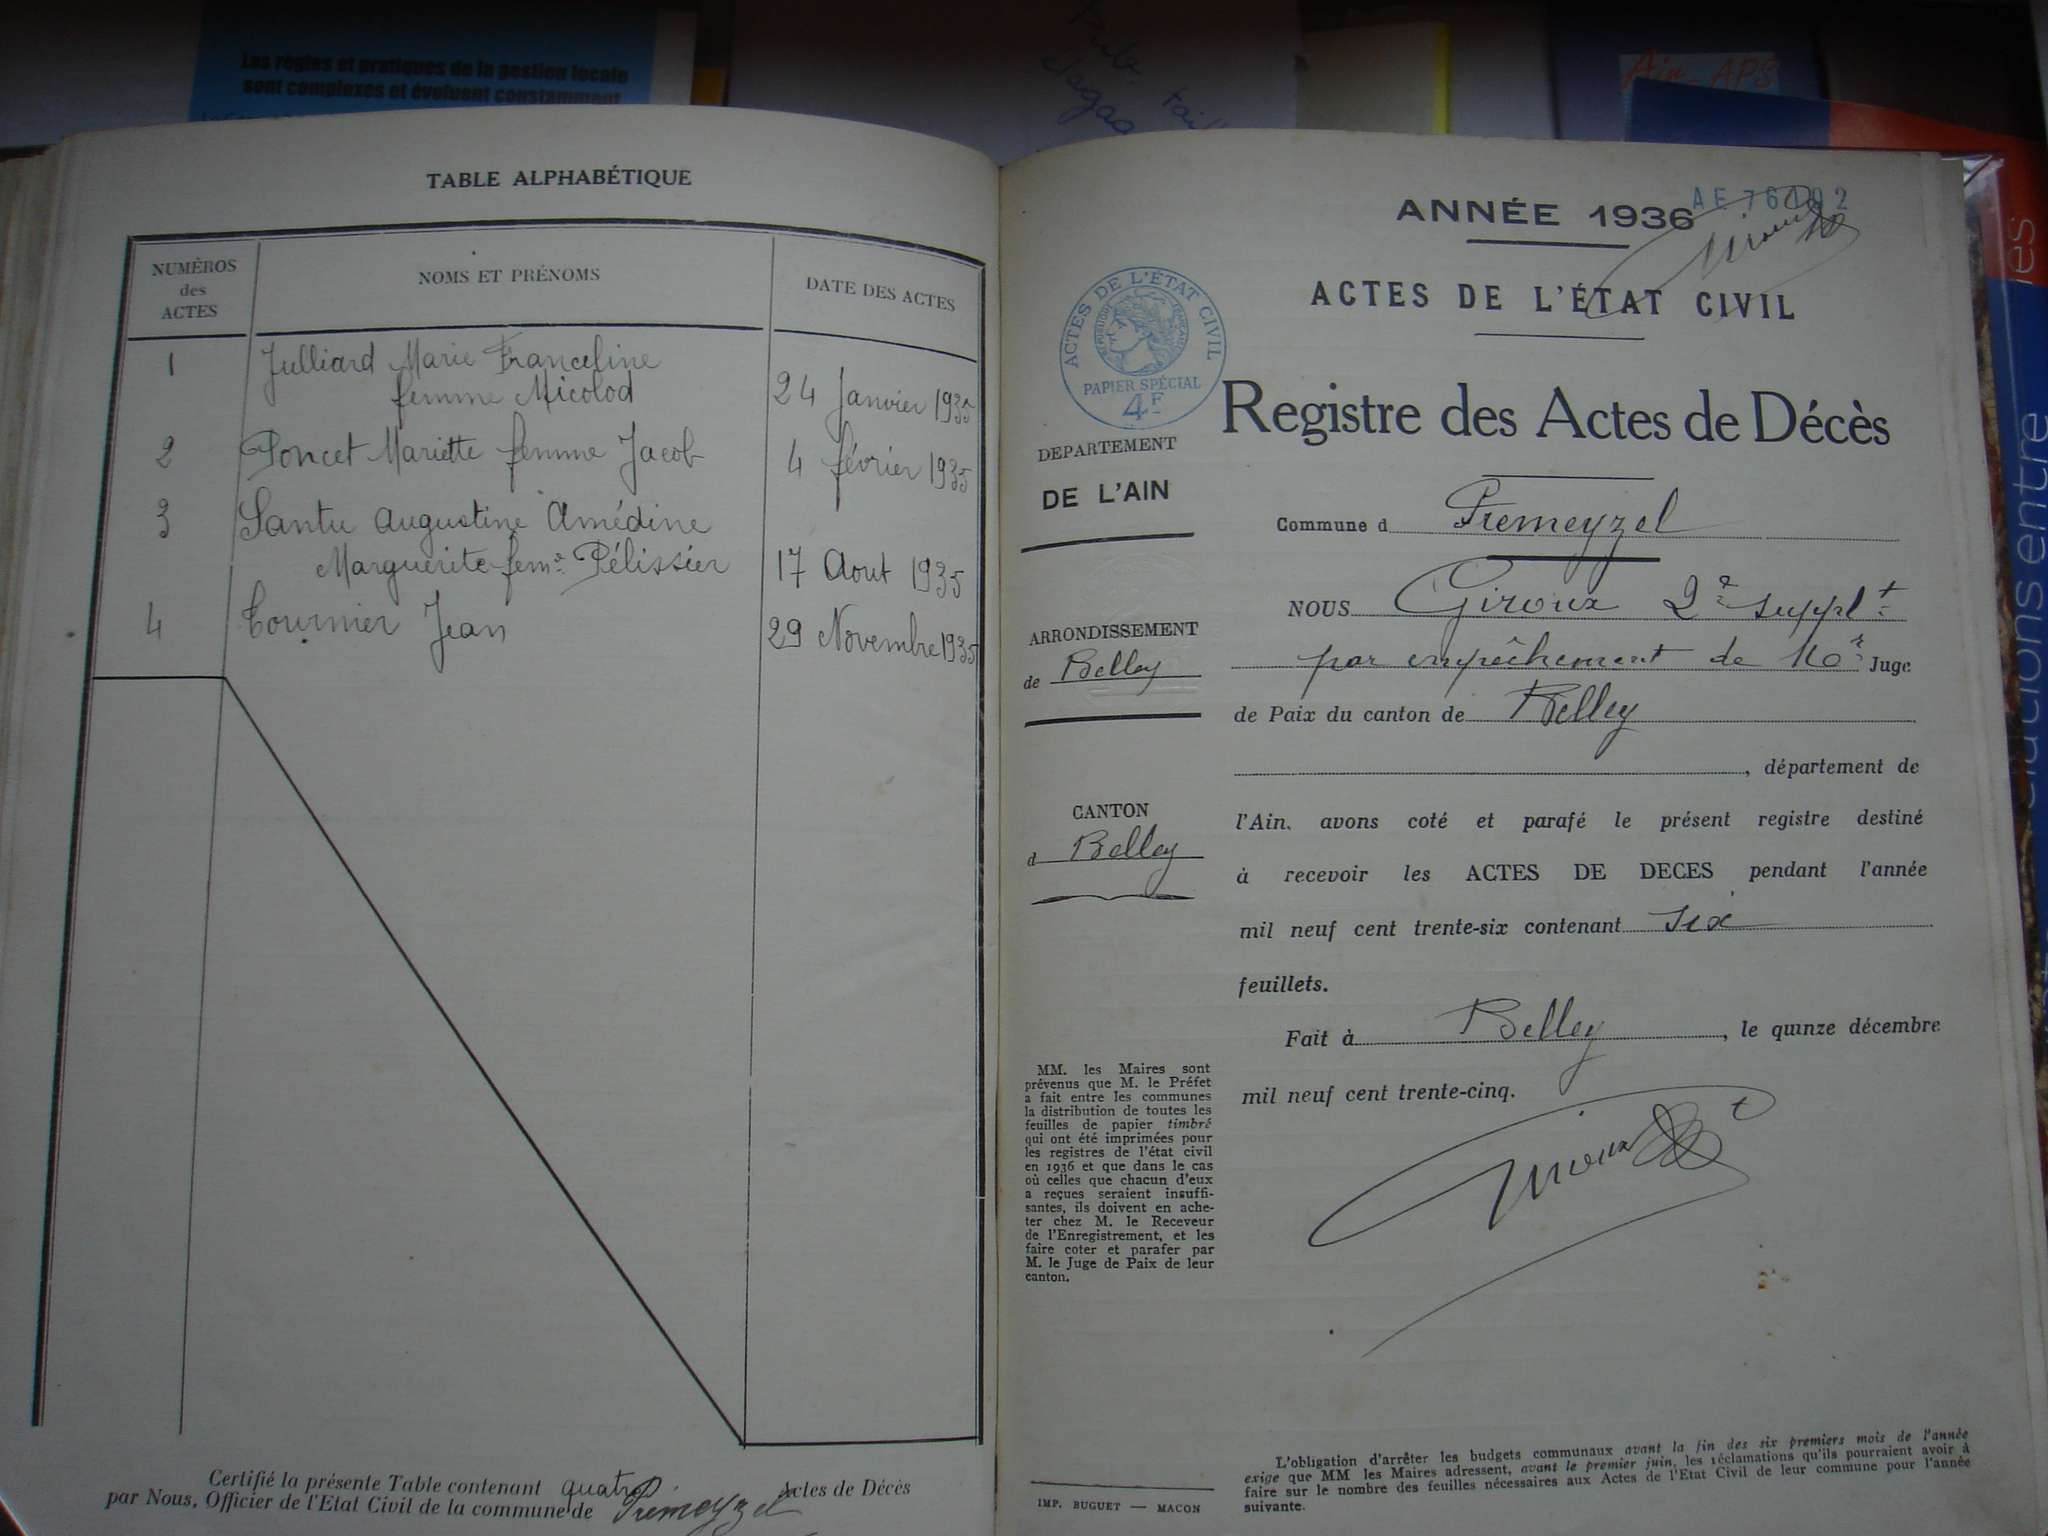 Les règles et pratiques de la gestion locale
sont complexes et évoluent constamment
Ain APS
TABLE ALPHABÉTIQUE
NUMÉROS des ACTES
NOMS ET PRÉNOMS
DATE DES ACTES
1 Julliard Marie Franceline
femme Micolod 24 Janvier 1935
2 Poncet Mariette femme Jacob 4 février 1935
3 Santu Augustine Amédine
Marguerite fem^e Pélissier 17 Aout 1935
4 Tournier Jean 29 Novembre 1935
Certifié la présente Table contenant quatre actes de Décès
par Nous, Officier de l'Etat Civil de la commune de Prémeyzel
ANNÉE 1936
ACTES DE L'ÉTAT CIVIL
ACTES DE L'ÉTAT CIVIL
RÉPUBLIQUE FRANÇAISE
PAPIER SPÉCIAL
4F
Registre des Actes de Décès
DEPARTEMENT
DE L'AIN
Commune d Premeyzel
NOUS Giroux 2e supplt
par empêchement de Mor Juge
ARRONDISSEMENT
de Belley
de Paix du canton de Belley
, département de
CANTON
d Belley
l'Ain, avons coté et parafé le présent registre destiné
à recevoir les ACTES DE DECES pendant l'année
mil neuf cent trente-six contenant six
feuillets.
Fait à Belley, le quinze décembre
mil neuf cent trente-cinq.
Giroux
MM. les Maires sont
prévenus que M. le Préfet
a fait entre les communes
la distribution de toutes les
feuilles de papier timbré
qui ont été imprimées pour
les registres de l'état civil
en 1936 et que dans le cas
où celles que chacun d'eux
a reçues seraient insuffi-
santes, ils doivent en ache-
ter chez M. le Receveur
de l'Enregistrement, et les
faire coter et parafer par
M. le Juge de Paix de leur
canton.
IMP. BUGUET — MACON
L'obligation d'arrêter les budgets communaux avant la fin des six premiers mois de l'année
exige que MM les Maires adressent, avant le premier juin, les réclamations qu'ils pourraient avoir à
faire sur le nombre des feuilles nécessaires aux Actes de l'Etat Civil de leur commune pour l'année
suivante.